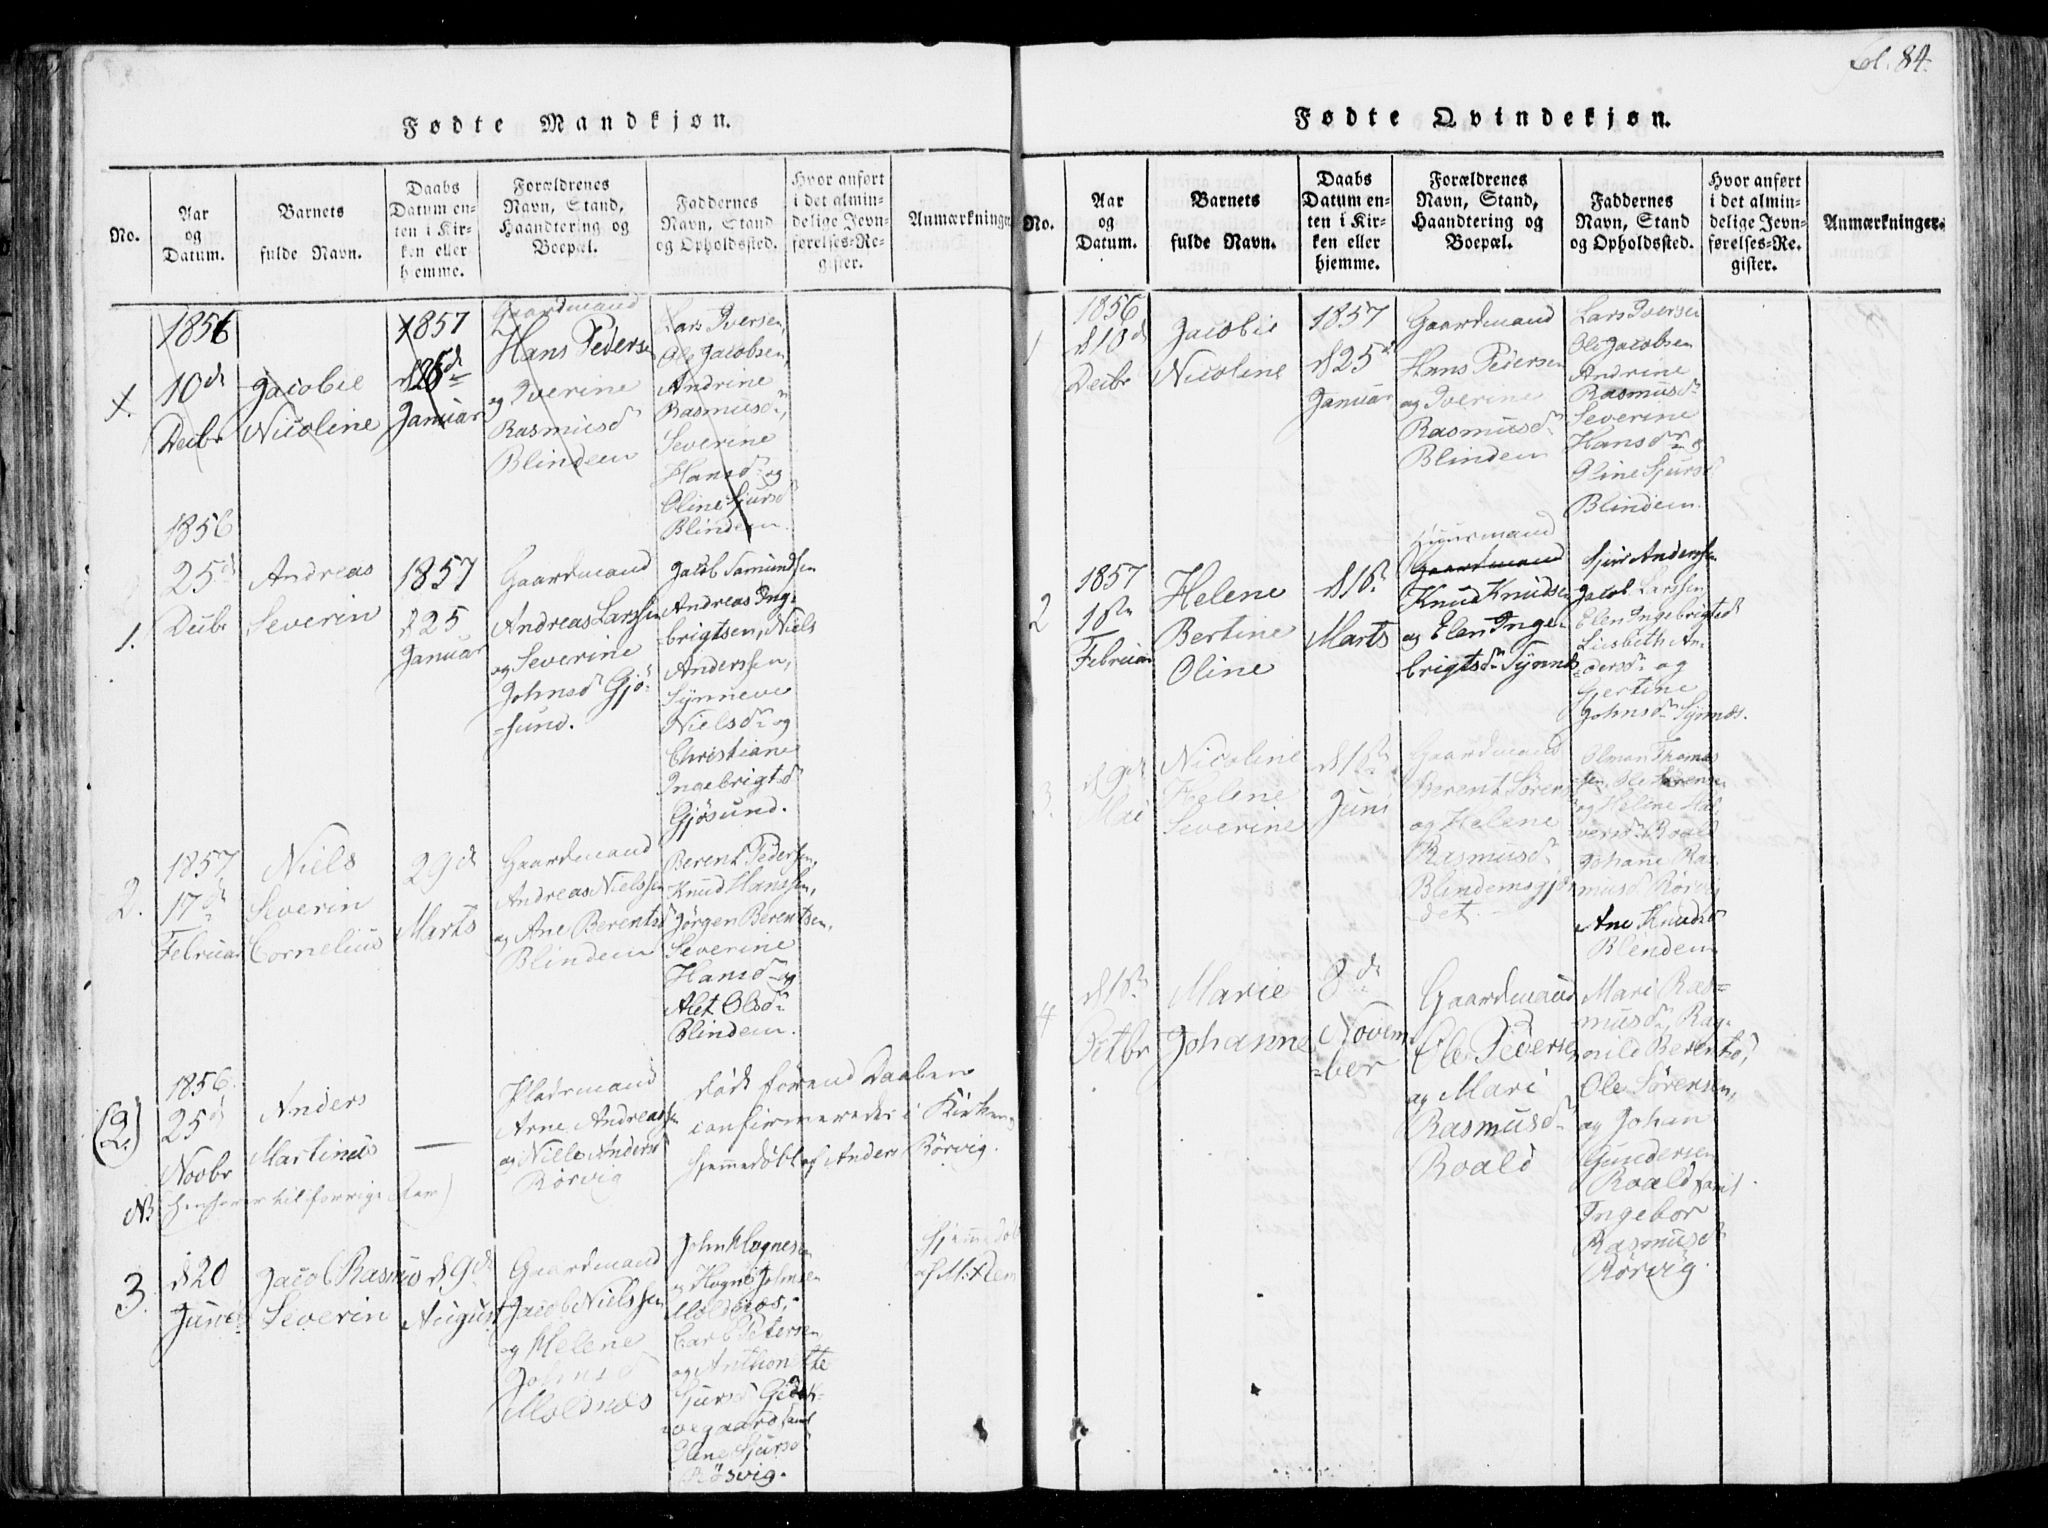 fol. 84.
Fødte Mandkjøn.
No.
Aar
og
Datum.
Barnets
fulde Navn.
Daabs
Datum en-
ten i Kir-
ken eller
hjemme.
Forældrenes
Navn, Stand,
Haandtering og
Boepæl.
Faddernes
Navn, Stand
og Opholdssted.
Hvor anført
i det almin-
delige Jevn-
førelses-Re-
gister.
Anmærkninger
1.
1856
10de
Decbr
Jacobie
Nicoline
1857
d 25de
Januar
Gaardmand
Hans Pedersen
og Iverine
Rasmusd
Blindem
Lars Iversen,
Ole Jacobsen,
Andrine
Rasmusdr,
Severine
Hansdr og
Oline Sjursd
Blindem.
1.
1856
25d
Decbr
Andreas
Severin
1857
d 25
Januar
Gaardmand
Andreas Larssen
og Severine
Johnsd Gjö-
sund.
Jacob Samundsen
Andreas Ing-
brigtsen, Niels
Anderssen,
Synneve
Nielsdr og
Christiane
Ingebrigtsd
Gjösund.
2.
1857
17de
Februar
Niels
Severin
Cornelius
29d
Marts
Gaardmand
Andreas Nielssen
og Ane Berentsd
Blindem
Berent Pedersen,
Knud Hanssen,
Jörgen Berentsen,
Severine
Hansd og
Alet Olsdr
Blindem.
(2.)
1856.
25d
Novbr
Anders
Martinus
—
Pladsmand
Arne Andreassen
og Nille Andersd
Rörvig
död förend Daaben
confirmeredes i Kirken,
hjemmedöbt af Anders Rörvig.
NB henhörer til forrige Aar)
3.
d 20
Juni
Jacob Rasmus
Severin
d 9d
August
Gaardmand
Jacob Nielssen
og Helene
Johnsd
Moldnæs
John Hognesen
og Hogne Johnsen
Moldnæs,
Carl Petersen
og Anthonette
Sjursd Giske-
gaard samt
Elene Sjursd
Rösvig.
hjemmedöbt
af
Fødte Qvindekjøn.
No.
Aar
og
Datum.
Barnets
fulde Navn.
Daabs
Datum en-
ten i Kir-
ken eller
hjemme.
Forældrenes
Navn, Stand,
Haandtering og
Boepæl.
Faddernes
Navn, Stand
og Opholdssted.
Hvor anført
i det almin-
delige Jevn-
førelses-Re-
gister.
Anmærkninger.
1
1856
d 10d
Decbr
Jacobie
Nicoline
1857
d 25d
Januar
Gaardmand
Hans Pedersen
og Iverine
Rasmusdr
Blindem
Lars Iversen
Ole Jacobsen
Andrine
Rasmusdr
Severine
Hansdr og
Oline Sjursd
Blindem.
2
1857
18de
Februar
Helene
Bertine
Oline
d 18de
Marts
Huusmand
Gaardmand
Knud Knudsen
og Elen Inge-
brigtsdr Synnes
Sjur Anderssen
Jacob Larssen
Elen Ingebrigtsd
Lisbeth An-
dersdr og
Gjertine
Johnsdr Synnes.
3.
d 9d
Mai
Nicoline
Helene
Severine
Juni
Gaardmand
Berent Sörens
og Helene
Rasmusdr
Blindemsgjer-
det.
Olman Thomas
sen, Ole Sörensen
og Helene Hal-
versd Roald
Johane Ras-
musd Rörvig
Ane Knudsd
Blendem
4
Octbr
Marie
Johanne
8de
Novem-
ber
Gaardmand
Ole Pedersen
og Mari
Rasmusdr
Roald
Mari Ras-
musdr, Rag-
nild Berentsd,
Ole Sörensen,
og Johan
Gundersen
Roald samt
Ingebor
Rasmusd
Rörvig.